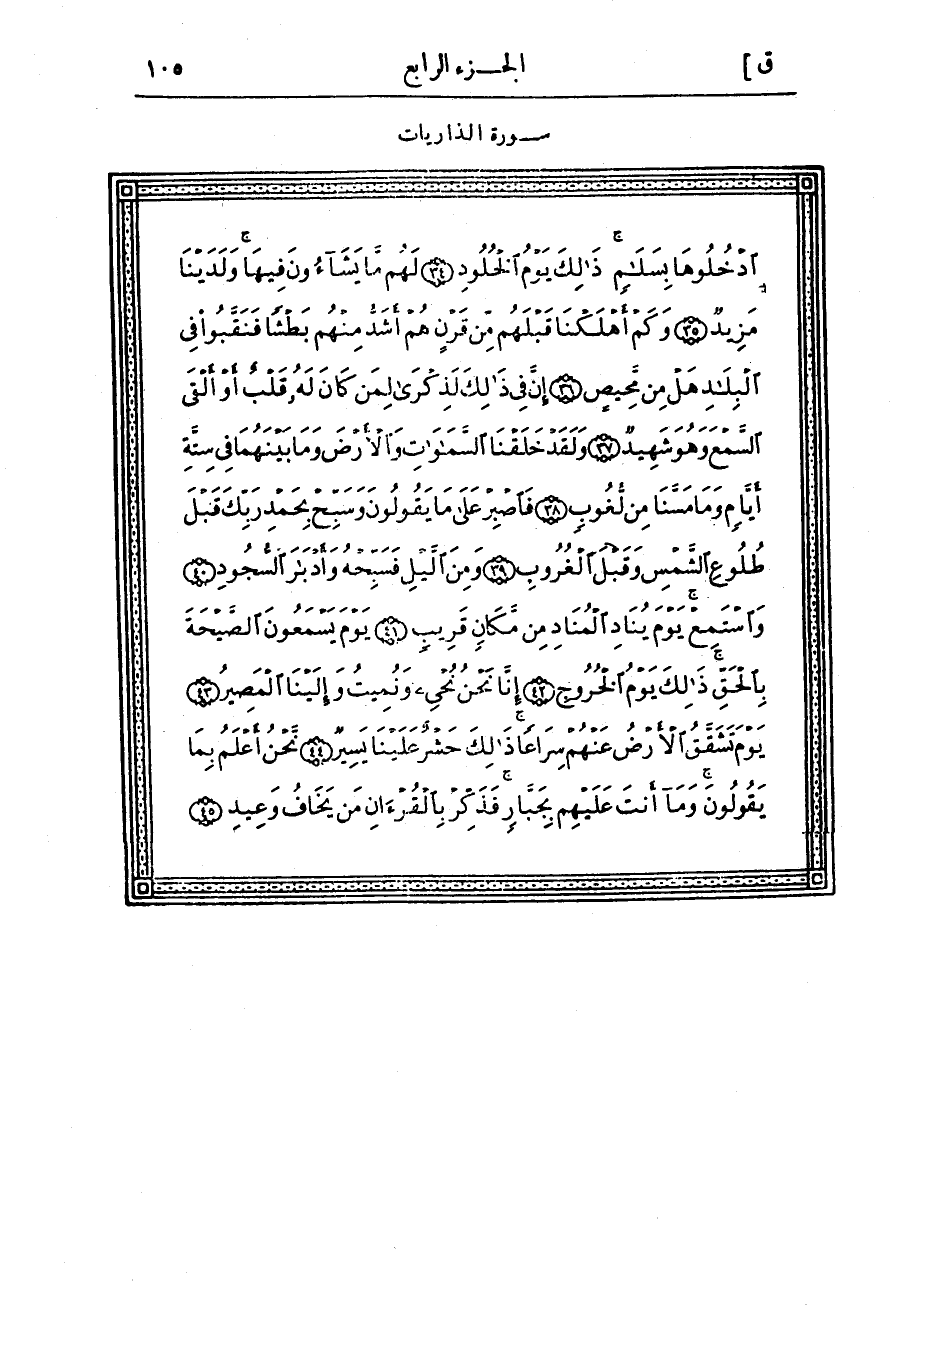 ق] الجزء الرابع ١٠٥
سورة الذاريات
ٱدْخُلُوهَا بِسَلَـٰمٍ ۖ ذَٰلِكَ يَوْمُ ٱلْخُلُودِ ﴿٣٤﴾ لَهُم مَّا يَشَآءُونَ فِيهَا ۖ وَلَدَيْنَا
مَزِيدٌ ﴿٣٥﴾ وَكَمْ أَهْلَكْنَا قَبْلَهُم مِّن قَرْنٍ هُمْ أَشَدُّ مِنْهُم بَطْشًا فَنَقَّبُوا۟ فِى
ٱلْبِلَـٰدِ هَلْ مِن مَّحِيصٍ ﴿٣٦﴾ إِنَّ فِى ذَٰلِكَ لَذِكْرَىٰ لِمَن كَانَ لَهُۥ قَلْبٌ أَوْ أَلْقَى
ٱلسَّمْعَ وَهُوَ شَهِيدٌ ﴿٣٧﴾ وَلَقَدْ خَلَقْنَا ٱلسَّمَـٰوَٰتِ وَٱلْأَرْضَ وَمَا بَيْنَهُمَا فِى سِتَّةِ
أَيَّامٍ وَمَا مَسَّنَا مِن لُّغُوبٍ ﴿٣٨﴾ فَٱصْبِرْ عَلَىٰ مَا يَقُولُونَ وَسَبِّحْ بِحَمْدِ رَبِّكَ قَبْلَ
طُلُوعِ ٱلشَّمْسِ وَقَبْلَ ٱلْغُرُوبِ ﴿٣٩﴾ وَمِنَ ٱلَّيْلِ فَسَبِّحْهُ وَأَدْبَـٰرَ ٱلسُّجُودِ ﴿٤٠﴾
وَٱسْتَمِعْ يَوْمَ يُنَادِ ٱلْمُنَادِ مِن مَّكَانٍ قَرِيبٍ ﴿٤١﴾ يَوْمَ يَسْمَعُونَ ٱلصَّيْحَةَ
بِٱلْحَقِّ ۚ ذَٰلِكَ يَوْمُ ٱلْخُرُوجِ ﴿٤٢﴾ إِنَّا نَحْنُ نُحْىِۦ وَنُمِيتُ وَإِلَيْنَا ٱلْمَصِيرُ ﴿٤٣﴾
يَوْمَ تَشَقَّقُ ٱلْأَرْضُ عَنْهُمْ سِرَاعًا ۚ ذَٰلِكَ حَشْرٌ عَلَيْنَا يَسِيرٌ ﴿٤٤﴾ نَّحْنُ أَعْلَمُ بِمَا
يَقُولُونَ ۖ وَمَآ أَنتَ عَلَيْهِم بِجَبَّارٍ ۖ فَذَكِّرْ بِٱلْقُرْءَانِ مَن يَخَافُ وَعِيدِ ﴿٤٥﴾